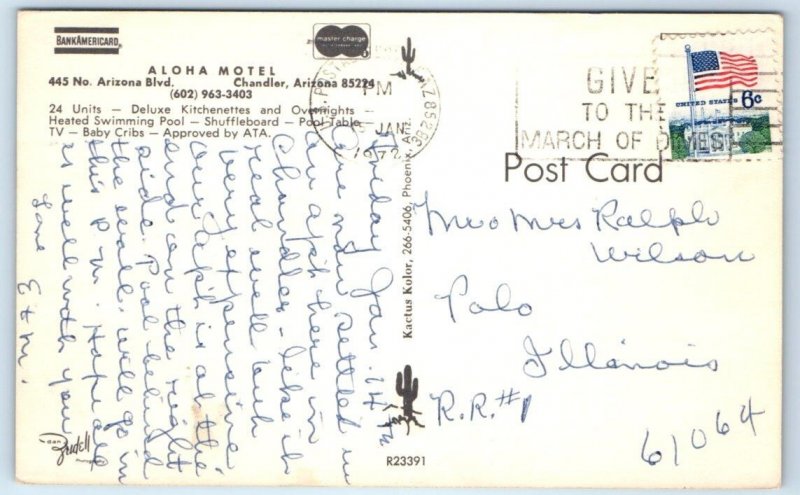 BANKAMERICARD
master charge
ALOHA MOTEL
445 No. Arizona Blvd. Chandler, Arizona 85224
(602) 963-3403
24 Units — Deluxe Kitchenettes and Overnights —
Heated Swimming Pool — Shuffleboard — Pool Table
TV — Baby Cribs — Approved by ATA.
PM
JAN
1972
GIVE
TO THE
MARCH OF DIMES
UNITED STATES 6c
Post Card
Friday Jan. 14
are now settled in
an apt here in
Chandler - like it
real well but
very expensive
our apt is at the
end on the right
side. Pool behind
the wall. will go in
this p.m. Hope all
is well with you
Love
Kactus Kolor, 266-5406, Phoenix, Ariz.
Mr & Mrs Ralph
Wilson
Polo
Illinois
R.R. #1
61064
dan Fridell
R23391